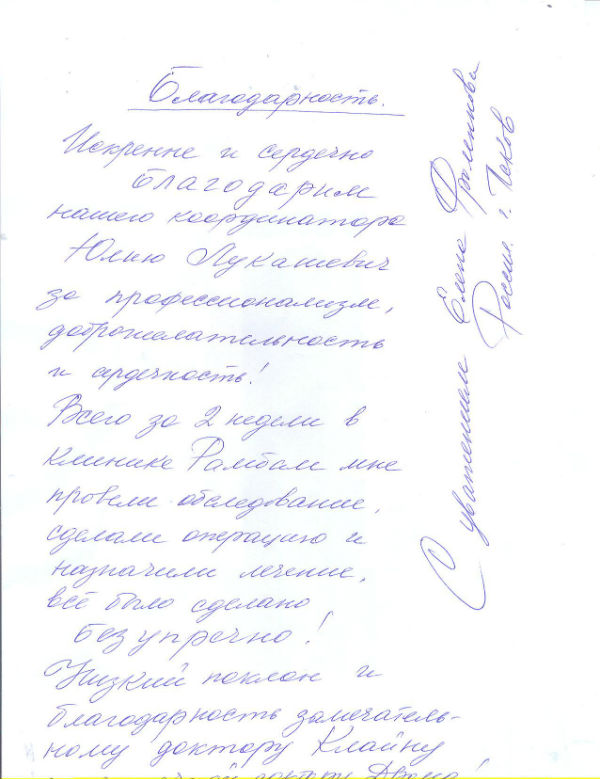 Благодарность.
Искренне и сердечно
благодарим
нашего координатора
Юлию Лукашевич
за профессионализм,
доброжелательность
и сердечность!
Всего за 2 недели в
клинике Рамбам мне
провели обследование,
сделали операцию и
назначили лечение,
всё было сделано
безупречно!
Низкий поклон и
благодарность замечатель-
ному доктору Клайну
доктору
С уважением Елена
Россия г. Псков